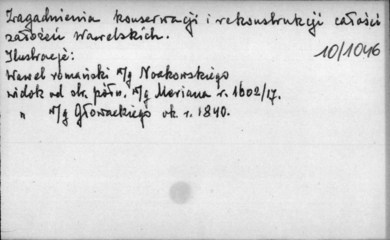 Zagadnienia konserwacji i rekonstrukcji całości
założeń Wawelskich.
Ilustracje:
10/1046
Wawel romański w/g Noakowskiego
widok od str. półn. w/g Meriana r. 1602/17.
" w/g Głowackiego ok. r. 1840.